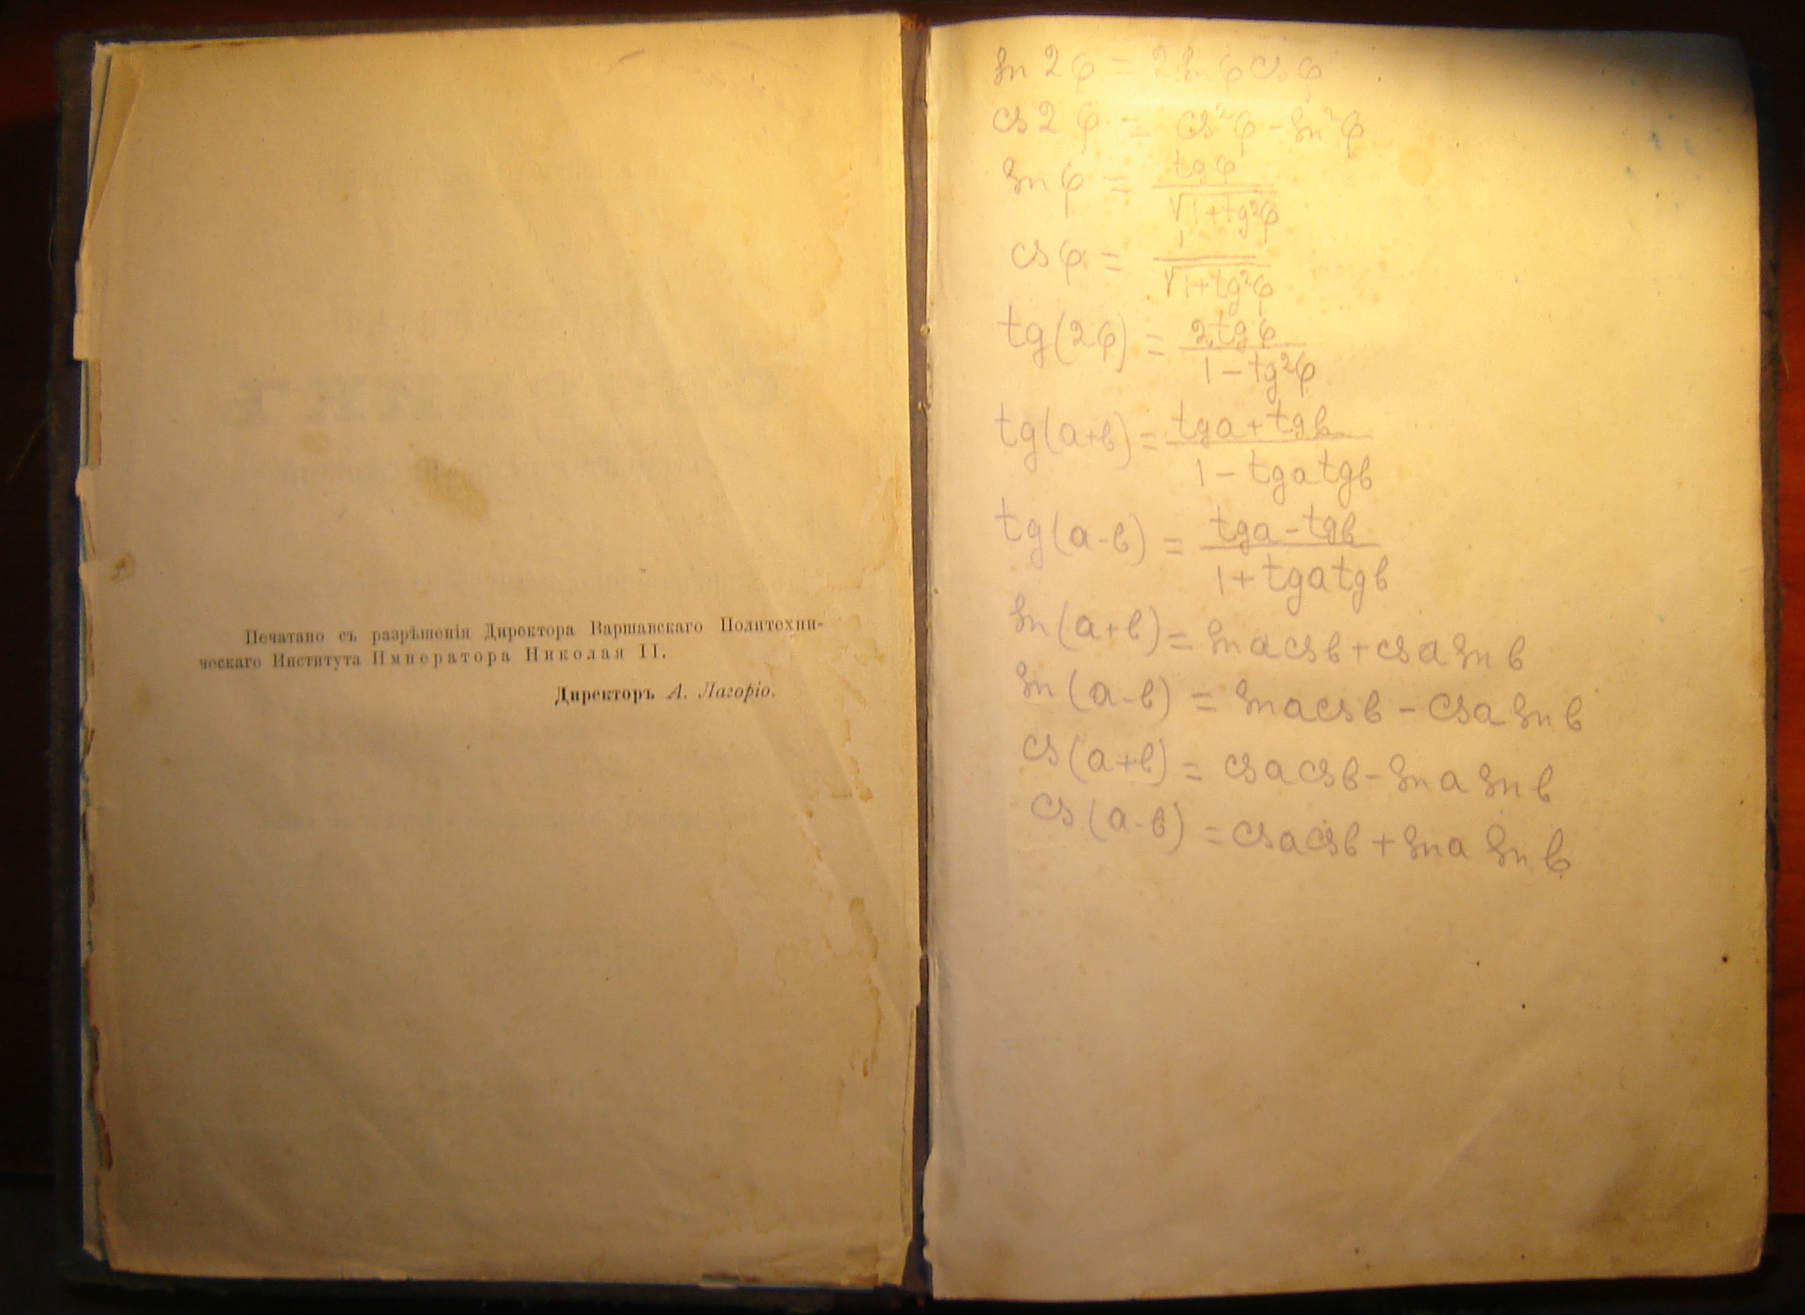 Печатано съ разрѣшенія Директора Варшавскаго Политехни-
ческаго Института Императора Николая II.
Директоръ А. Лагоріо.
sn 2φ = 2 sn φ cs φ
cs 2φ = cs²φ - sn²φ
sn φ = tg φ / √1+tg²φ
cs φ = 1 / √1+tg²φ
tg(2φ) = 2tg φ / 1 - tg²φ
tg(a+b) = tga + tgb / 1 - tga tgb
tg(a-b) = tga - tgb / 1 + tga tgb
sn(a+b) = sna csb + csa snb
sn(a-b) = sna csb - csa snb
cs(a+b) = csa csb - sna snb
cs(a-b) = csa csb + sna snb